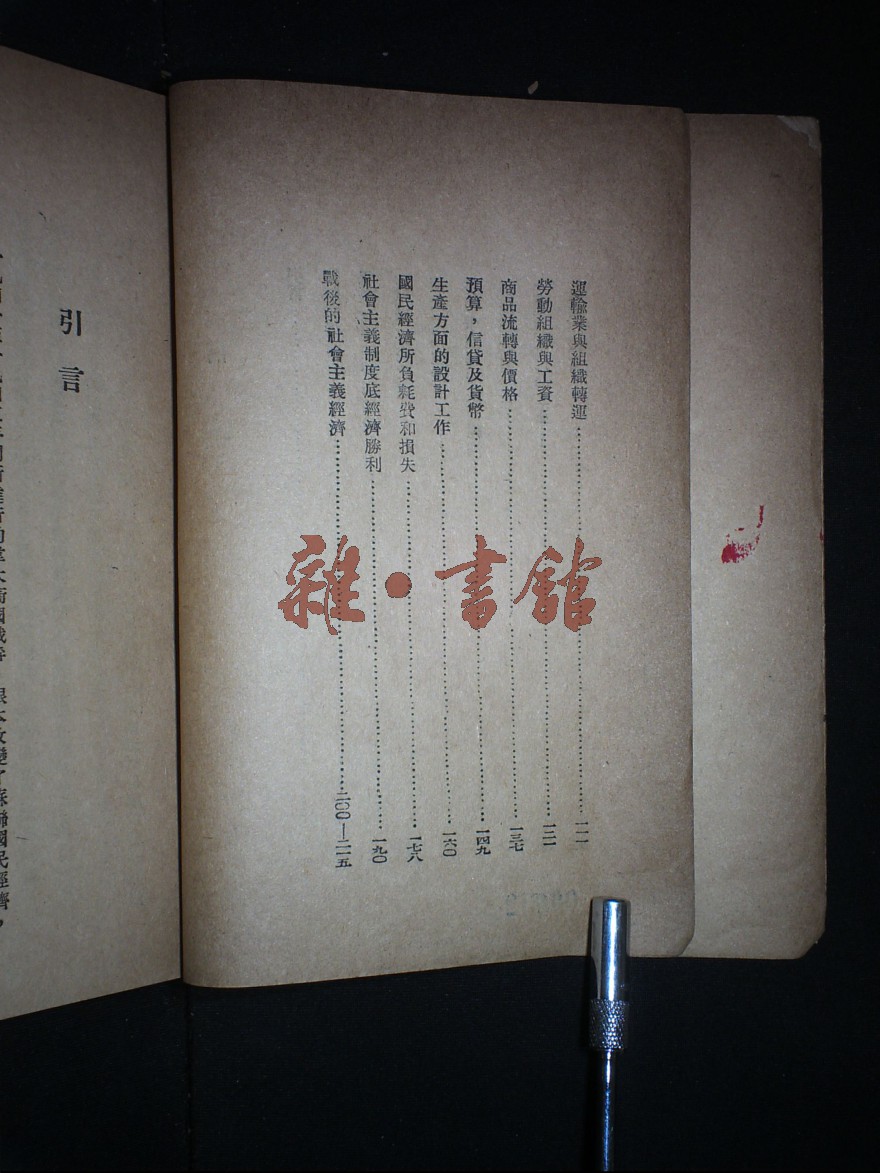 運輸業與組織轉運……一一一
勞動組織與工資……一二一
商品流轉與價格……一三七
預算，信貸及貨幣……一四九
生產方面的設計工作……一六〇
國民經濟所負耗毀和損失……一七八
社會主義制度底經濟勝利……一九〇
戰後的社會主義經濟……二〇〇—二一五
雜·書館
引言
根本改變了蘇聯國民經濟，